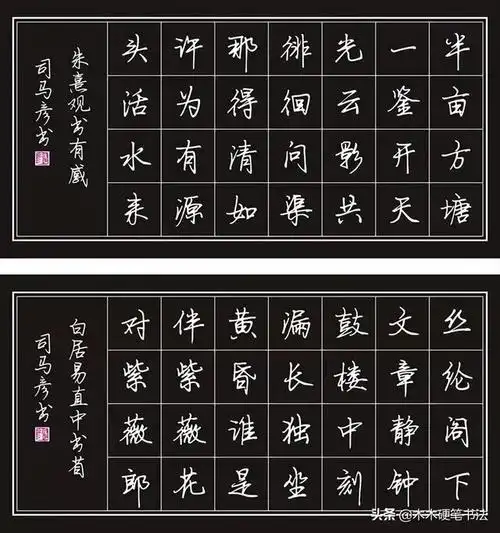 半亩方塘
一鉴开天
光云影共
徘徊问渠
那得清如
许为有源
头活水来
朱熹观书有感
司马彦书
丝纶阁下
文章静钟
鼓楼中刻
漏长独坐
黄昏谁是
伴紫薇花
对紫薇郎
白居易直中书省
司马彦书
头条@木木硬笔书法